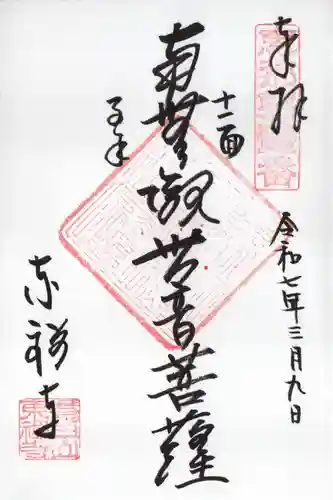 奉拝
令和七年三月九日
十一面
千手
南無観世音菩薩
東祥寺